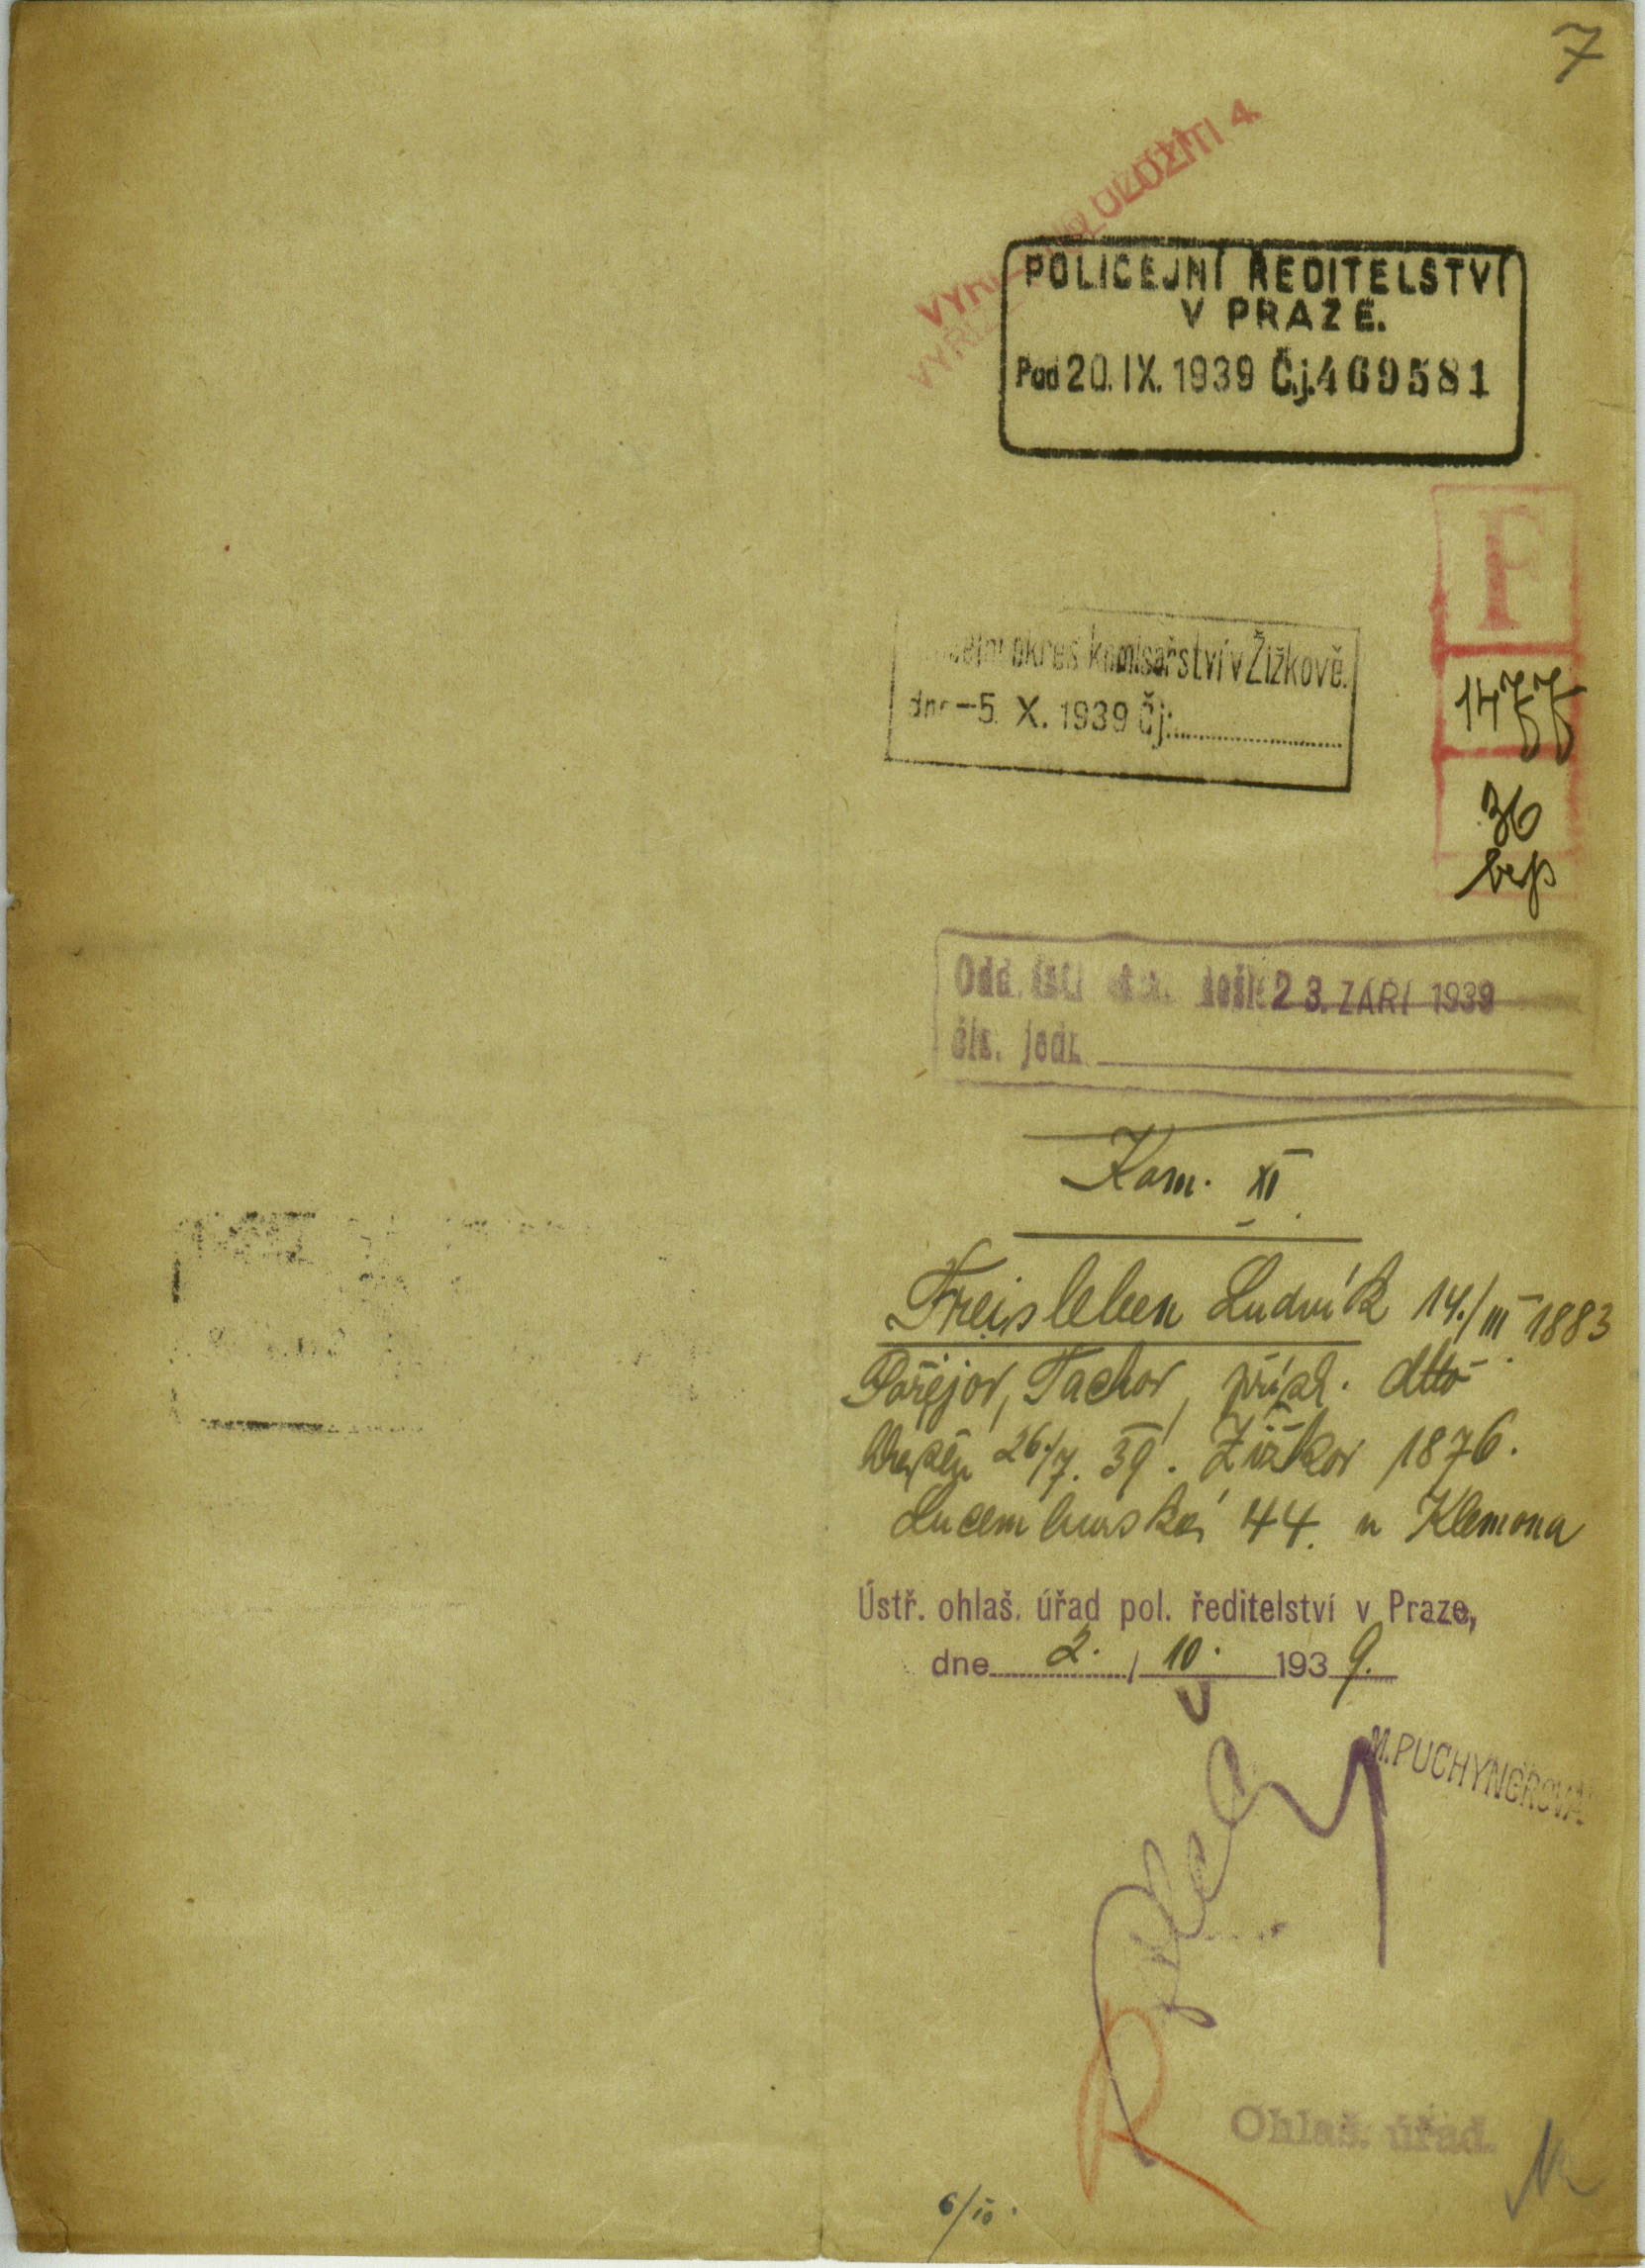 7
ULOŽITI 4.
POLICEJNÍ ŘEDITELSTVÍ
V PRAZE.
Pod 20. IX. 1939 Č.j. 469581
F
okres. komisařství v Žižkově.
dne -5. X. 1939 Čj:
1477
36
Odd. došlo 23. ZÁŘÍ 1939
čís. jedn.
Kom. XI
Freisleben Ludvík 14./III 1883
Pořejov, Tachov, přísl. dtto
26./7. 39. Žižkov 1876.
Lucemburská 44. u Klemona
Ústř. ohlaš. úřad pol. ředitelství v Praze,
dne 2. / 10. 1939.
M. PUCHYNGROVÁ
Ohlaš. úřad.
6/10.